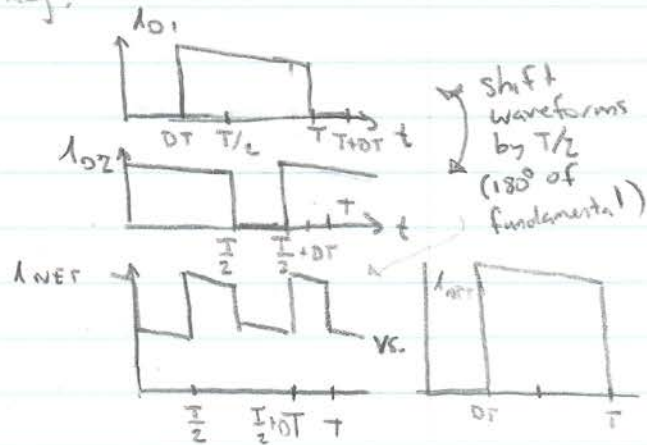 i_D1
DT T/2 T T+DT t
shift
waveforms
by T/2
(180° of
fundamental)
i_D2
T/2 T/2+DT T t
i_NET
vs.
T/2 T/2+DT T
DT T